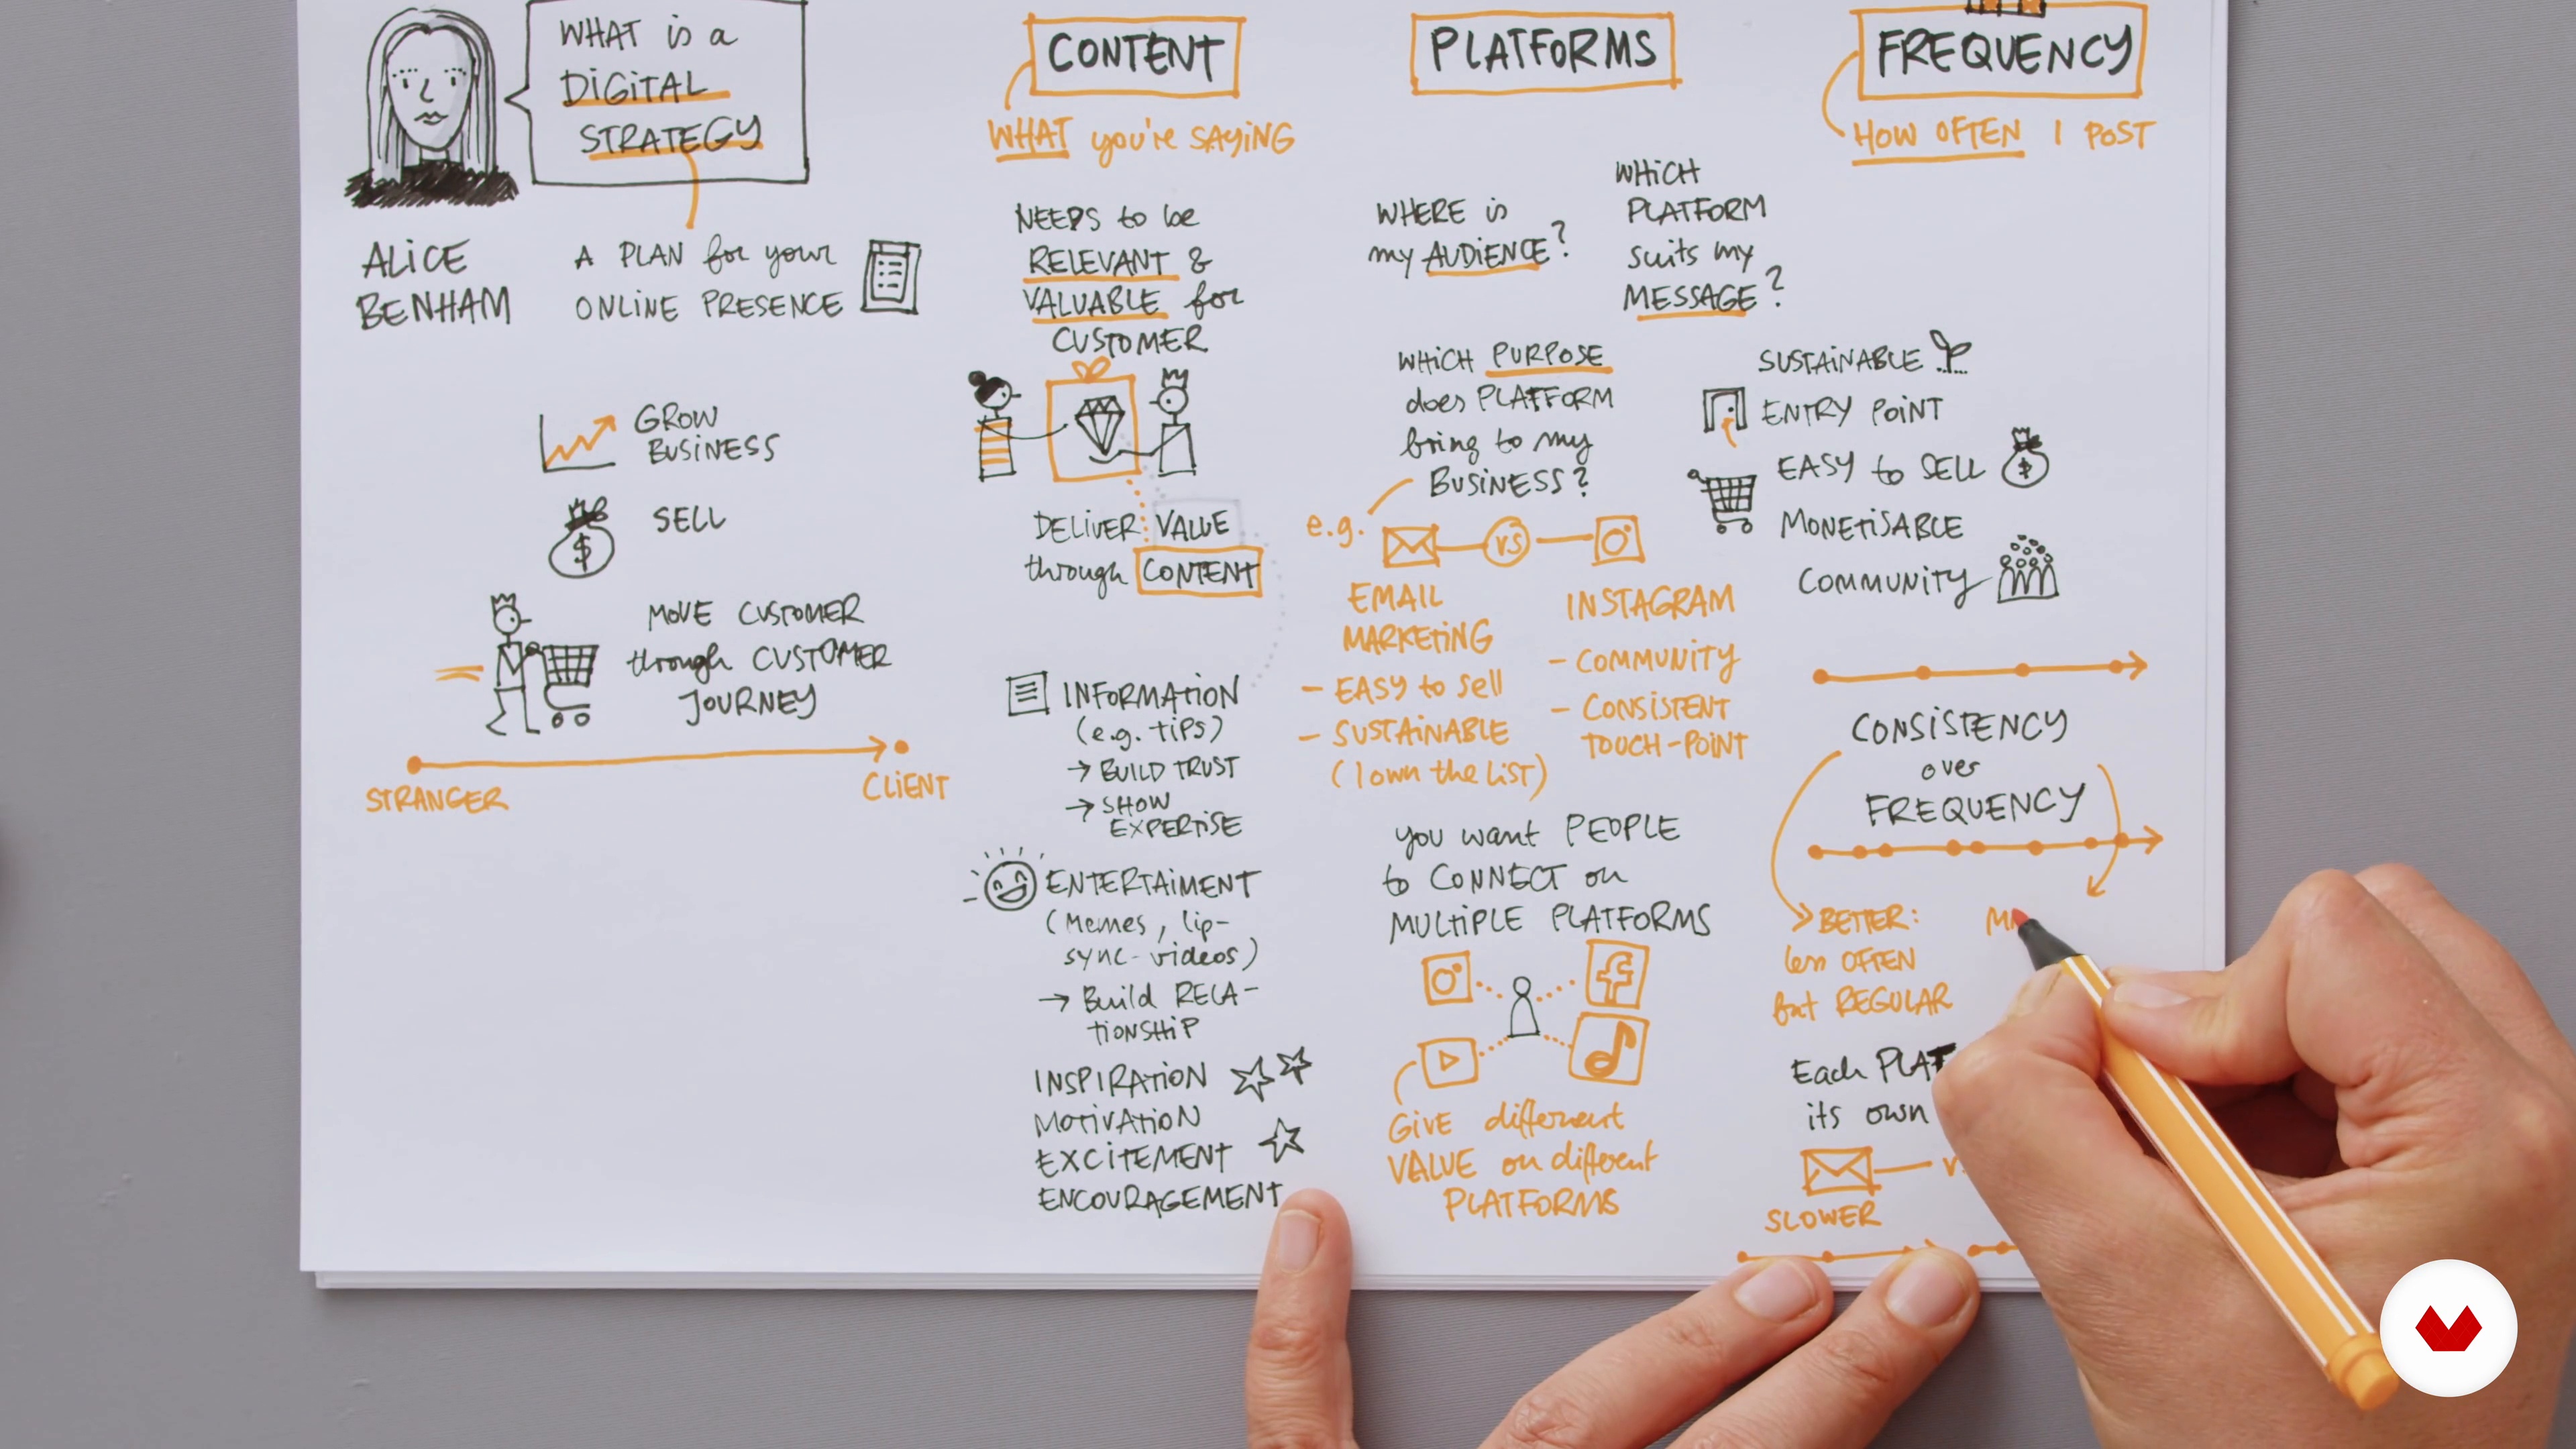 WHAT is a
DIGITAL
STRATEGY
ALICE
BENHAM
A PLAN for your
ONLINE PRESENCE
GROW
BUSINESS
$
SELL
MOVE CUSTOMER
through CUSTOMER
JOURNEY
STRANGER
CLIENT
CONTENT
WHAT you're SAYING
NEEDS to be
RELEVANT &
VALUABLE for
CUSTOMER
DELIVER VALUE
through CONTENT
INFORMATION
(e.g. TIPS)
→ BUILD TRUST
→ SHOW
EXPERTISE
ENTERTAIMENT
(Memes, lip-
sync-videos)
→ Build RELA-
TIONSHIP
INSPIRATION
MOTIVATION
EXCITEMENT
ENCOURAGEMENT
PLATFORMS
WHERE is
my AUDIENCE?
WHICH
PLATFORM
suits my
MESSAGE?
WHICH PURPOSE
does PLATFORM
bring to my
BUSINESS?
e.g.
vs
EMAIL
MARKETING
- EASY to sell
- SUSTAINABLE
(I own the list)
INSTAGRAM
- COMMUNITY
- CONSISTENT
TOUCH-POINT
you want PEOPLE
to CONNECT on
MULTIPLE PLATFORMS
f
GIVE different
VALUE on different
PLATFORMS
FREQUENCY
HOW OFTEN I POST
SUSTAINABLE
ENTRY POINT
EASY to SELL
$
MONETISABLE
COMMUNITY
CONSISTENCY
over
FREQUENCY
BETTER:
less OFTEN
but REGULAR
Each PLAT
its own
SLOWER